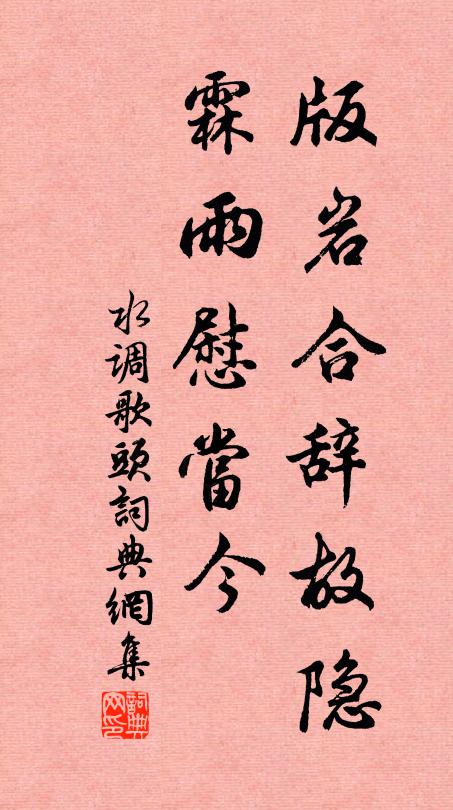 版岩合辞故隐
霖雨慰當今
水调歌頭詞典網集
詞典网印